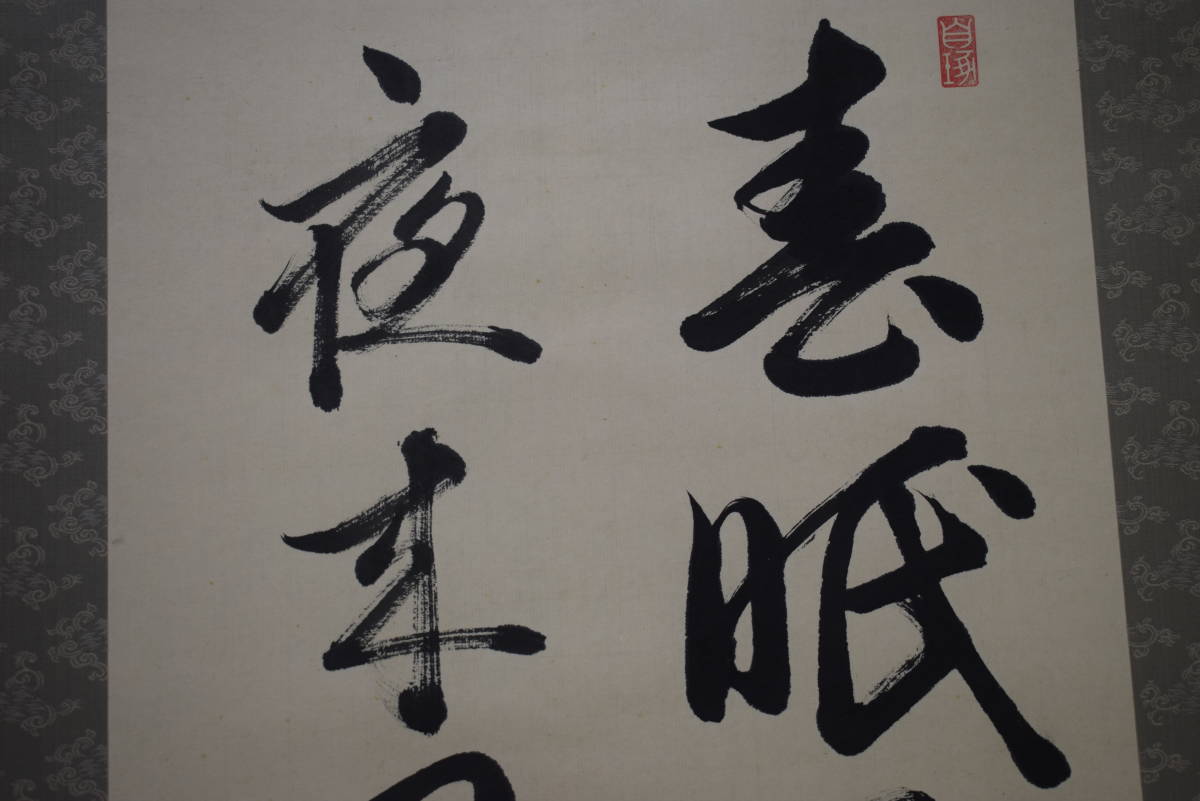 春眠
夜来